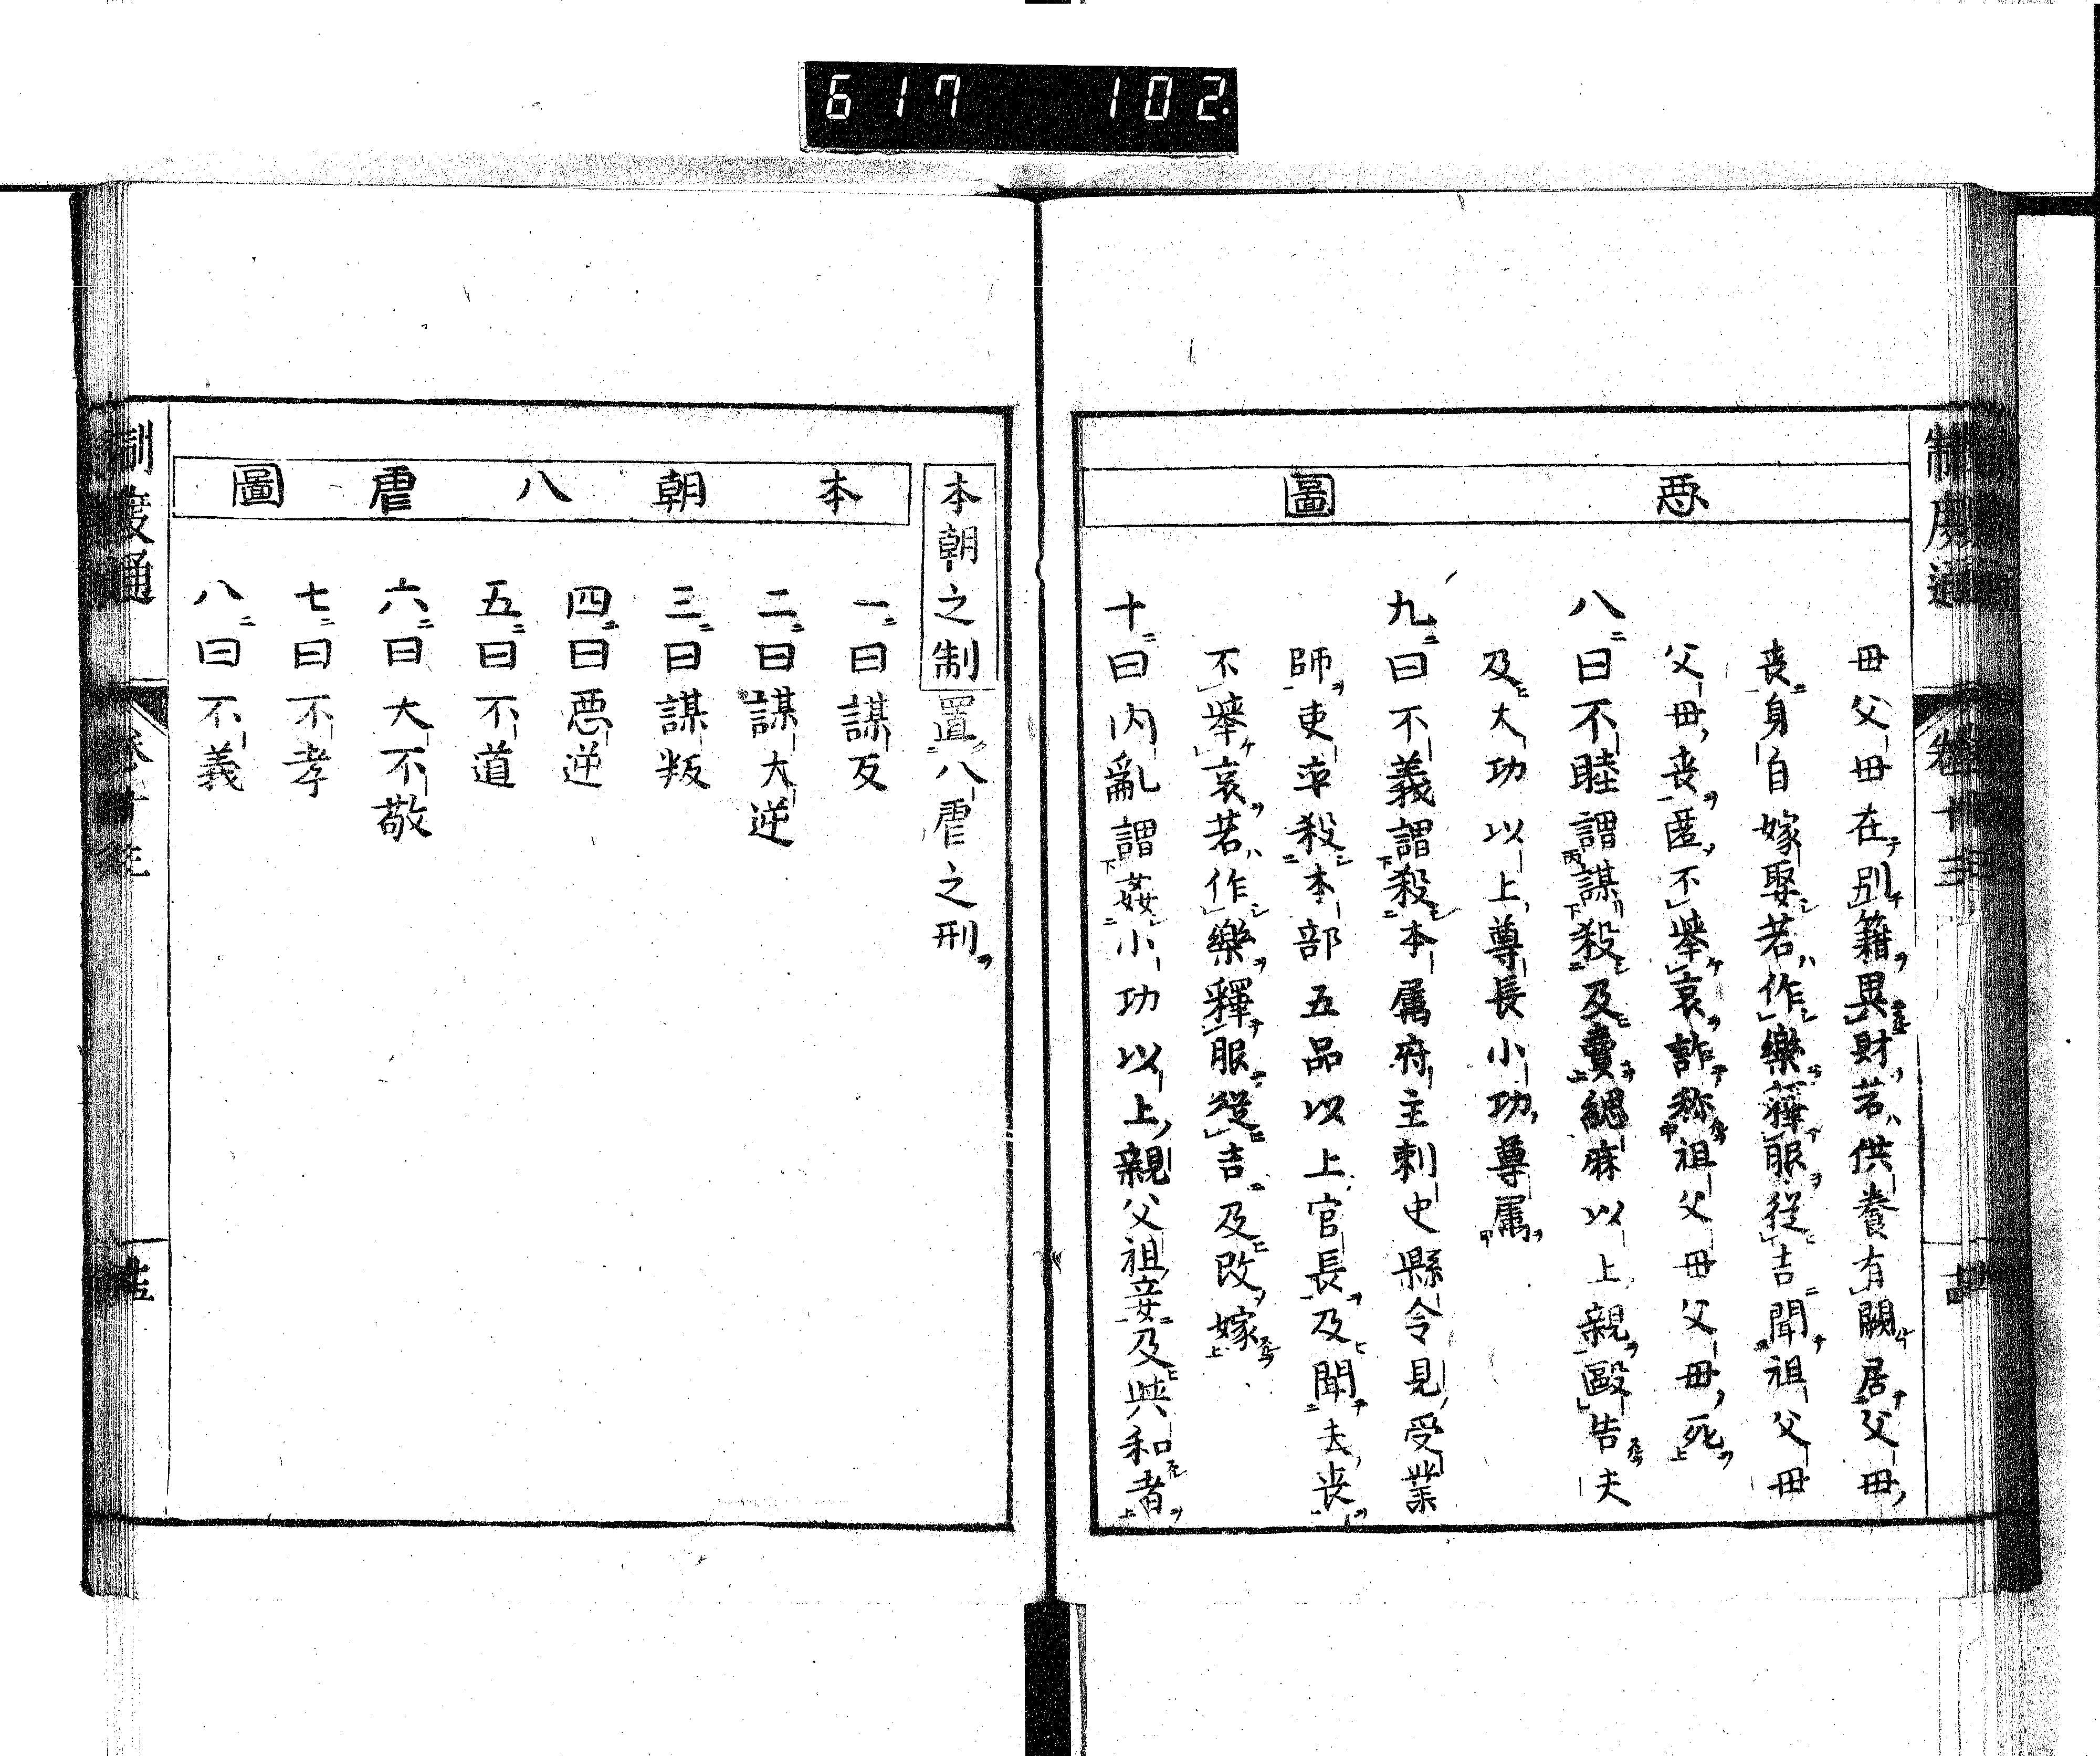 617 102.
制度通
卷十三
惡圖
母父母在別籍異財若供養有闕居父母
喪身自嫁娶若作樂釋服從吉聞祖父母
父母喪匿不舉哀詐称祖父母父母死
八曰不睦謂謀殺及賣緦麻以上親毆告夫
及大功以上尊長小功尊屬
九曰不義謂殺本属府主刺史縣令見受業
師吏卒殺本部五品以上官長及聞夫喪
不舉哀若作樂釋服從吉及改嫁
十曰内亂謂姦小功以上親父祖妾及與和者
本朝之制置八虐之刑
本朝八虐圖
一曰謀反
二曰謀大逆
三曰謀叛
四曰惡逆
五曰不道
六曰大不敬
七曰不孝
八曰不義
制度通